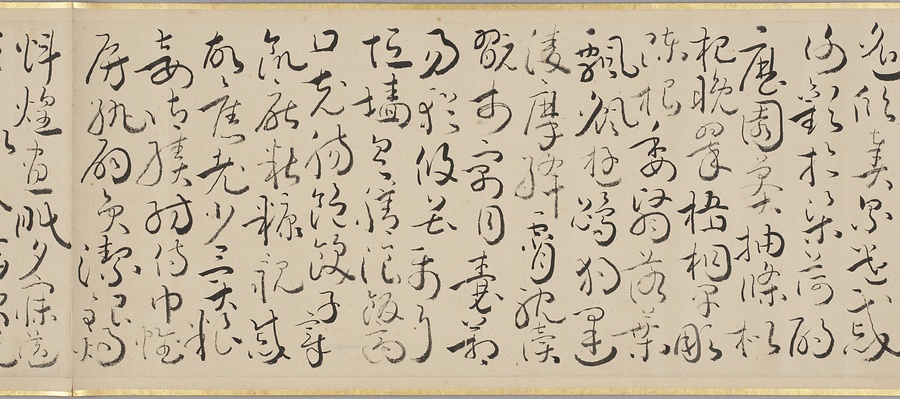 遙欣奏累遣慼
謝歡招渠荷的
歷園莽抽條枇
杷晚翠梧桐早彫
陳根委翳落葉
飄颻遊鵾獨運
凌摩絳霄耽讀
翫市寓目囊箱
易輶攸畏屬耳
垣墻具膳飡飯適
口充腸飽飫烹宰
飢厭糟糠親戚
故舊老少異糧
妾御績紡侍巾帷
房紈扇員潔銀燭
煒煌晝眠夕寐藍